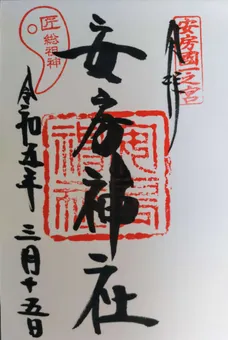 安房国一之宮
奉拝
安房神社
安房神社
匠総祖神
令和五年三月十五日